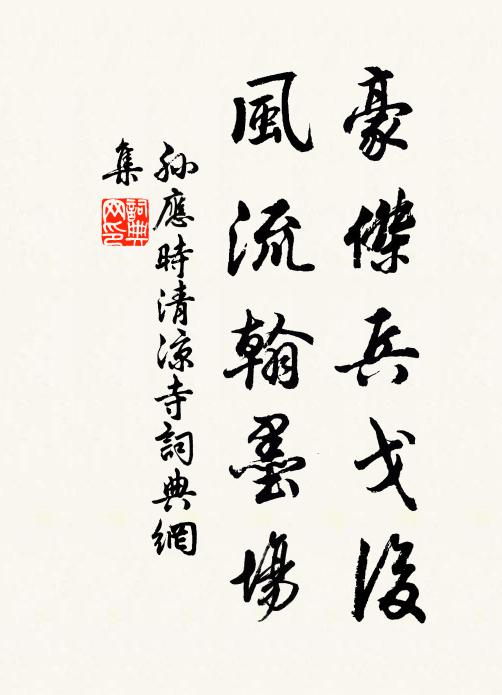 豪傑兵戈後
風流翰墨場
孫應時清涼寺詞典網
集
詞典網印